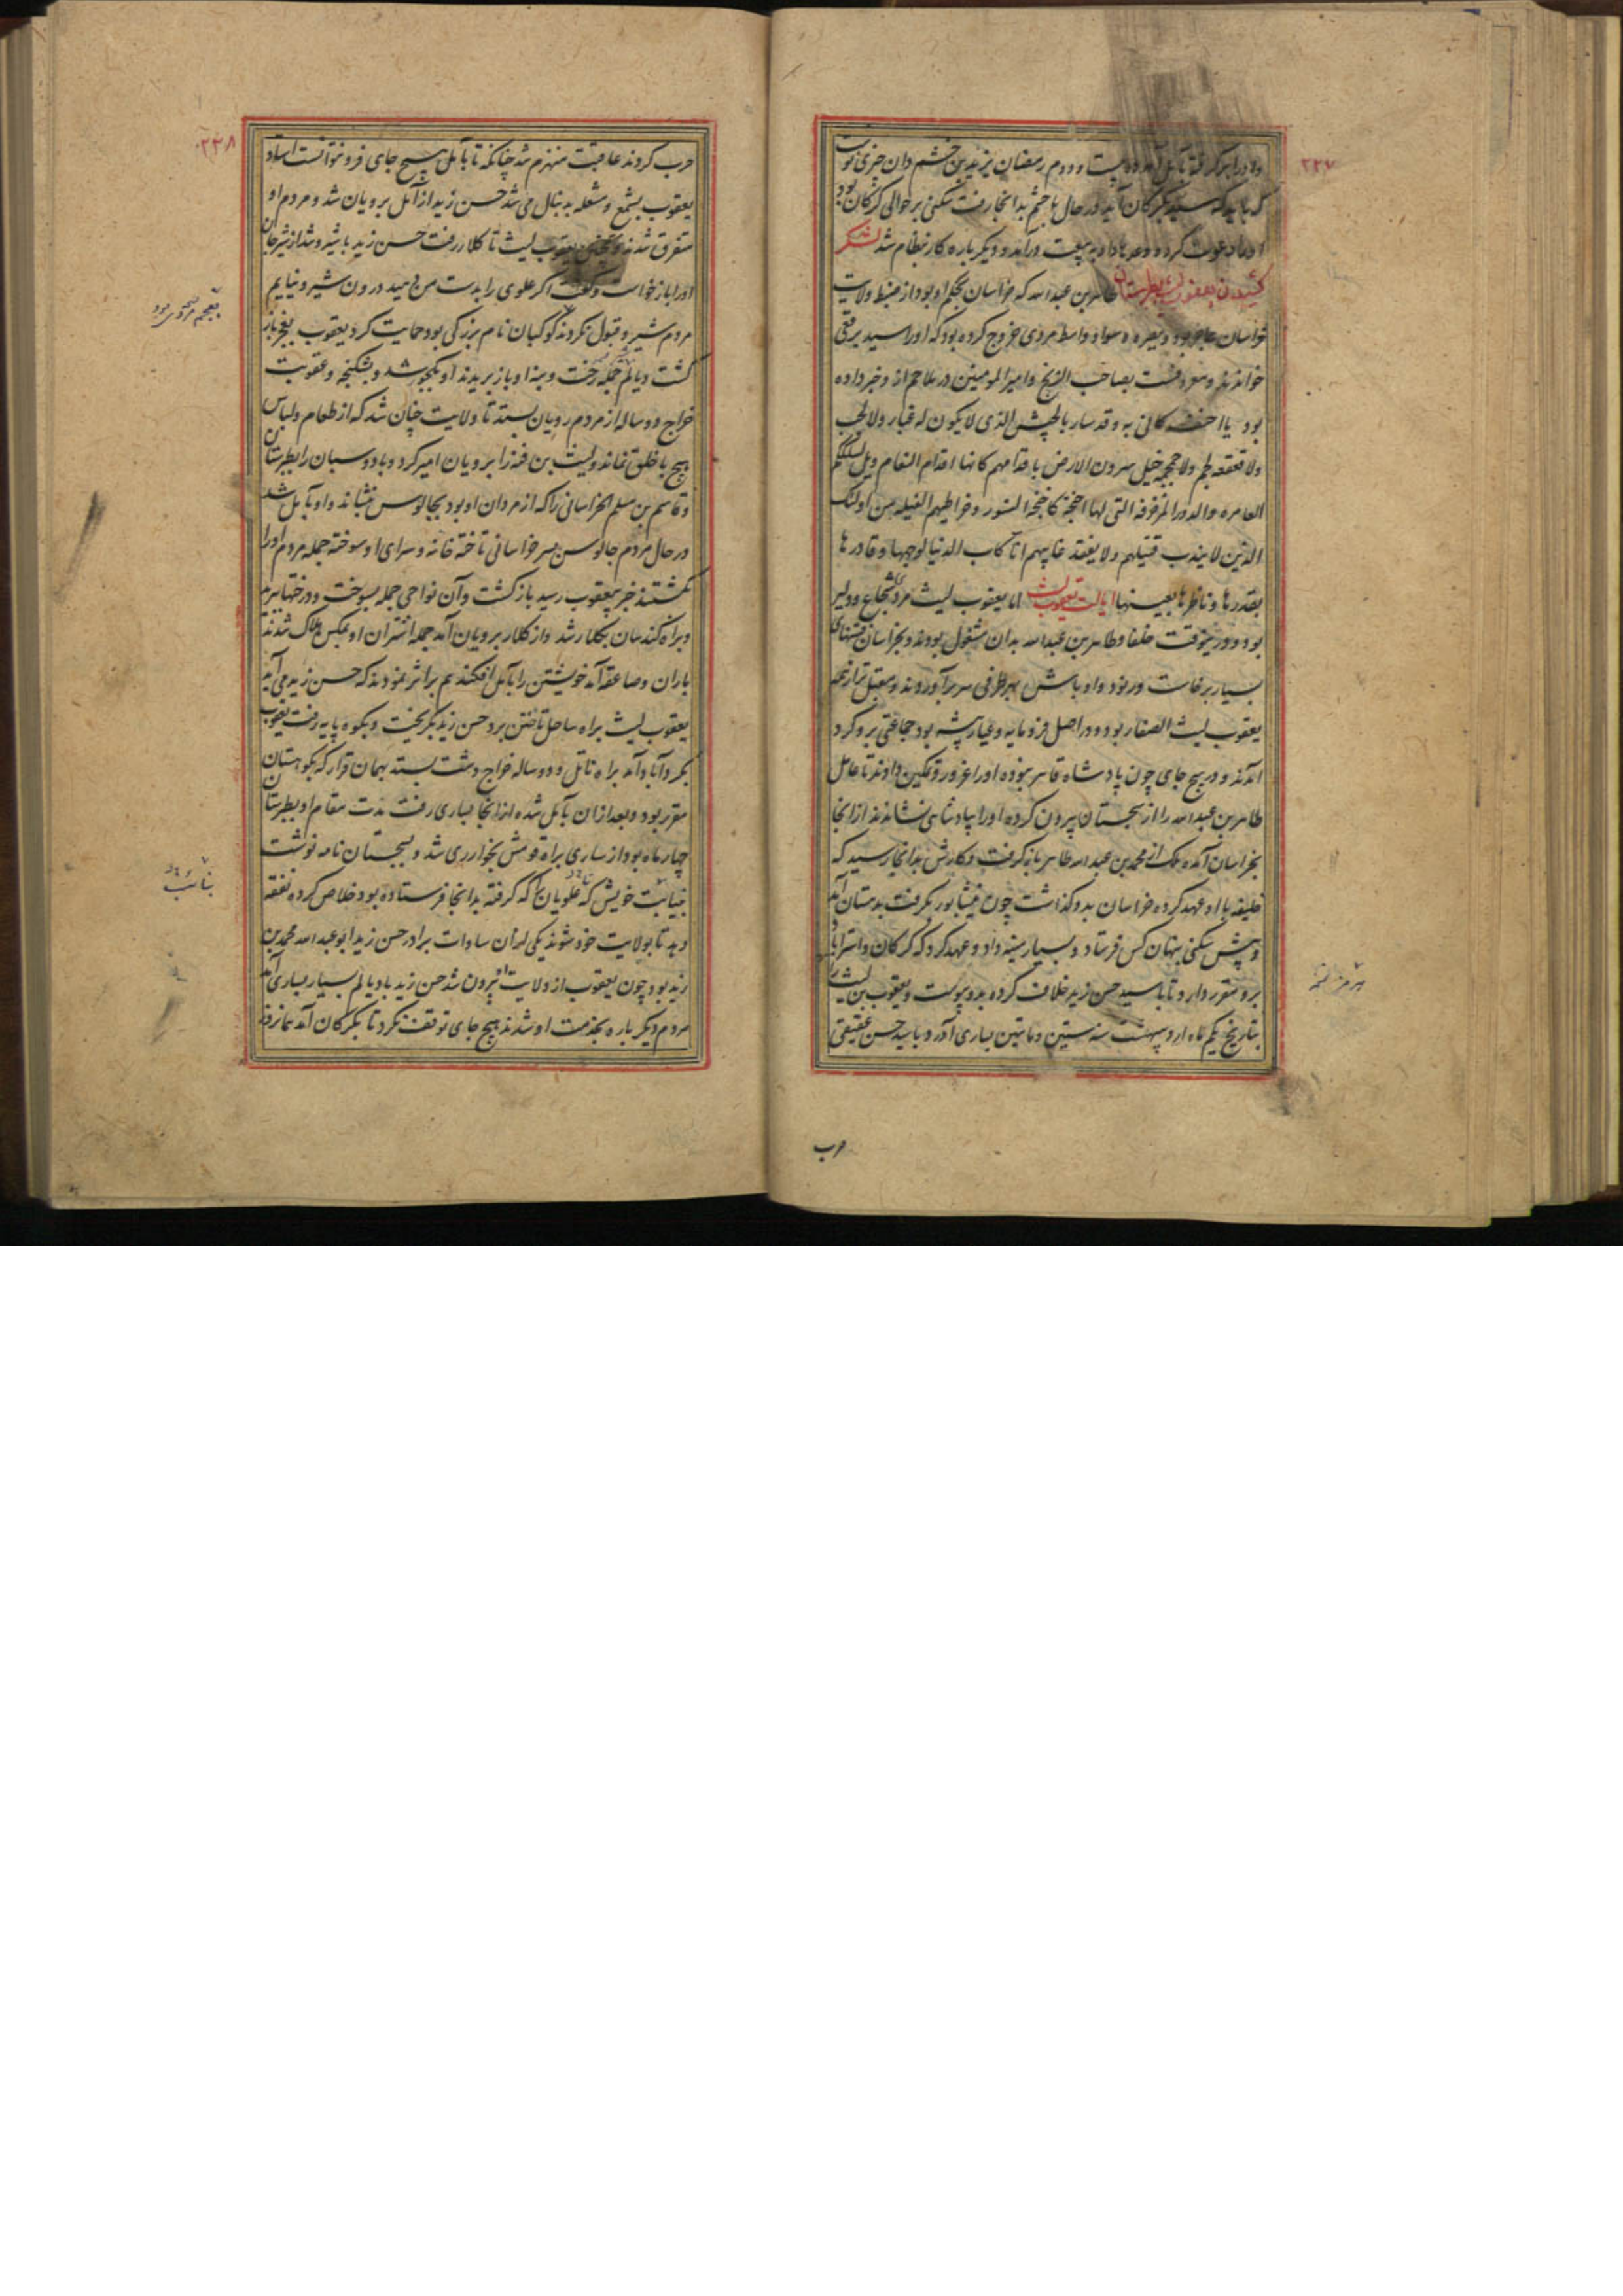 ۲۲۷
بیست و دوم رمضان یزید بن خشم دان چیزی نوشت
که باید که سید بگرگان آید در حال با خشم بدانجا رفت سکنی بر حوالی گرگان بود
دعوت کرد و وعدها داد به بیعت درآمد و دیگر باره کار نظام شد لشکر
کشیدن یعقوب لیث بطبرستان طاهر بن عبدالله که خراسان بحکم او بود از ضبط ولایت
خراسان عاجز بود و ببصره و سواد واسط مردی خروج کرده بود که او را سید برقعی
خوانند و معروفست بصاحب الزنج و امیرالمومنین در ملاحم از و خبر داده
بود یا احنف کانی به و قد سار بالجیش الذی لا یکون له غبار ولا لجب
ولا قعقعة لجم ولا حمحمة خیل یثیرون الارض باقدامهم کانها اقدام النعام ویل لسکککم
العامره والدور المزخرفه التی لها اجنحة کاجنحة النسور و خراطیم الفیله من اولئک
الذین لا یندب قتیلهم ولا یفقد غایبهم انا کاب الدنیا لوجهها و قادرها
بقدرها و ناظرها بعینها ایالت یعقوب لیث اما یعقوب لیث مردی شجاع و دلیر
بود و در ینوقت خلفا و طاهر بن عبدالله بدان مشغول بودند و بخراسان فتنهای
بسیار برخاست و رنود و اوباش بهر طرفی سر برآوردند و معتبل تر از همه
یعقوب لیث الصفار بود و در اصل فرومایه و عیار پیشه بود جماعتی برو گرد
آمدند و در هیچ جای چون پادشاه قاهر نبوده او را غرور و تمکین دادند تا عامل
طاهر بن عبدالله را از سجستان بیرون کرده او را بپادشاهی نشاندند از آنجا
بخراسان آمده ملک از محمد بن عبدالله طاهر باز گرفت و کارش بدانجا رسید که
خلیفه با او عهد کرده خراسان بدو گذاشت چون نیشابور بگرفت بدهستان آمد
و پیش سکنی پنهان کس فرستاد و بسیار هدیه داد و عهد کرد که گرگان و استراباد
برو مقرر دارد تا با سید حسن زید خلاف کرده بدو پیوست و یعقوب بن لیث را
بتاریخ یکم ماه اردیبهشت سنه ستین و ماتین بساری آورد و با سید حسن عقیقی
حرب
۲۲۸
حرب کردند عاقبت منهزم شد چنانکه تا بآمل هیچ جای فرو نتوانست استاد
یعقوب بشمع و شعله بدنبال می شد حسن زید از آمل برویان شد و مردم او
متفرق شدند یعقوب لیث تا کلار رفت حسن زید با شیر و شد از شیرجان
او را باز خواست و گفت اگر علوی را بدست من دهید درون شیر و نیایم
مردم شیر و قبول نکردند کوکبان نام بزرگی بود حمایت کرد یعقوب بعجز باز
گشت و دیالم جمله رخت و بنه او باز بریدند او بکجور شد و بشکنجه و عقوبت
خراج دو ساله از مردم رویان بستد تا ولایت چنان شد که از طعام و لباس
هیچ با خلق نماند و لیث بن فنه را برویان امیر کرد و بادوسبان را بطبرستان
و قاسم بن مسلم الخراسانی را که از مردان او بود بچالوس بنشاند و او بآمل شد
در حال مردم چالوس بسر خراسانی تاخته خانه و سرای او سوخته جمله مردم او را
بکشتند خبر بیعقوب رسید بازگشت و آن نواحی جمله بسوخت و درختها ببرید
و براه کندسان بکلار شد و از کلار برویان آمد جمله اشتران او بمکس هلاک شدند
باران و صاعقه آمد خویشتن را بآمل افکند هم بر اثر نمودند که حسن زید می آید
یعقوب لیث براه ساحل تاختن برد حسن زید بگریخت و بکوه پایه رفت یعقوب
بکردآباد آمد براه ناتل و دو ساله خراج دشت بستد بهمان قرار که بکوهستان
مقرر بود و بعد از ان بآمل شده از آنجا بساری رفت مدت مقام او بطبرستان
چهار ماه بود از ساری براه قومش بخوار ری شد و بسجستان نامه نوشت
بنیابت خویش که علویان که گرفته بدانجا فرستاده بود خلاص کرده نفقه
دهد تا بولایت خود شوند یکی از ان سادات برادر حسن زید ابو عبدالله محمد بن
زید بود چون یعقوب از ولایت بیرون شد حسن زید با دیالم بسیار بساری آمد
مردم دیگر باره بخدمت او شدند هیچ جای توقف نکرد تا بگرگان آمد